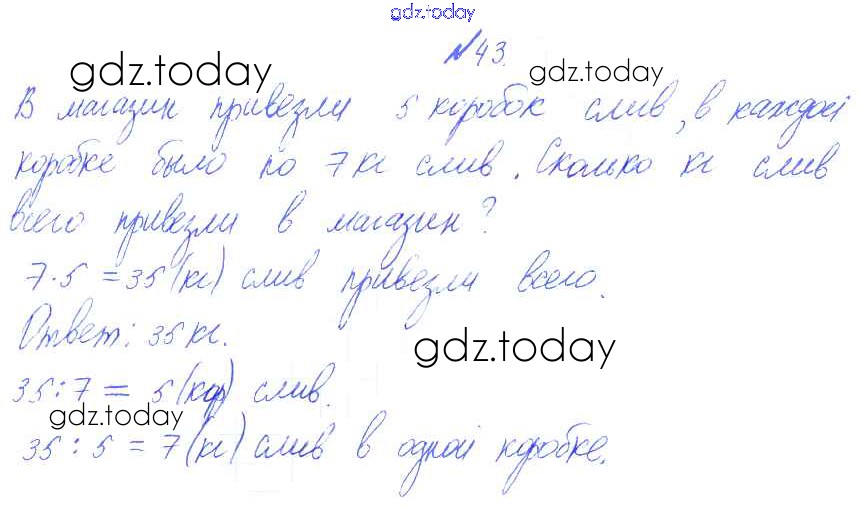 gdz.today
№43.
gdz.today gdz.today
В магазин привезли 5 коробок слив, в каждой
коробке было по 7 кг слив. Сколько кг слив
всего привезли в магазин?
7·5 = 35 (кг) слив привезли всего.
Ответ: 35 кг.
gdz.today
35:7 = 5 (кор) слив.
gdz.today
35 : 5 = 7 (кг) слив в одной коробке.